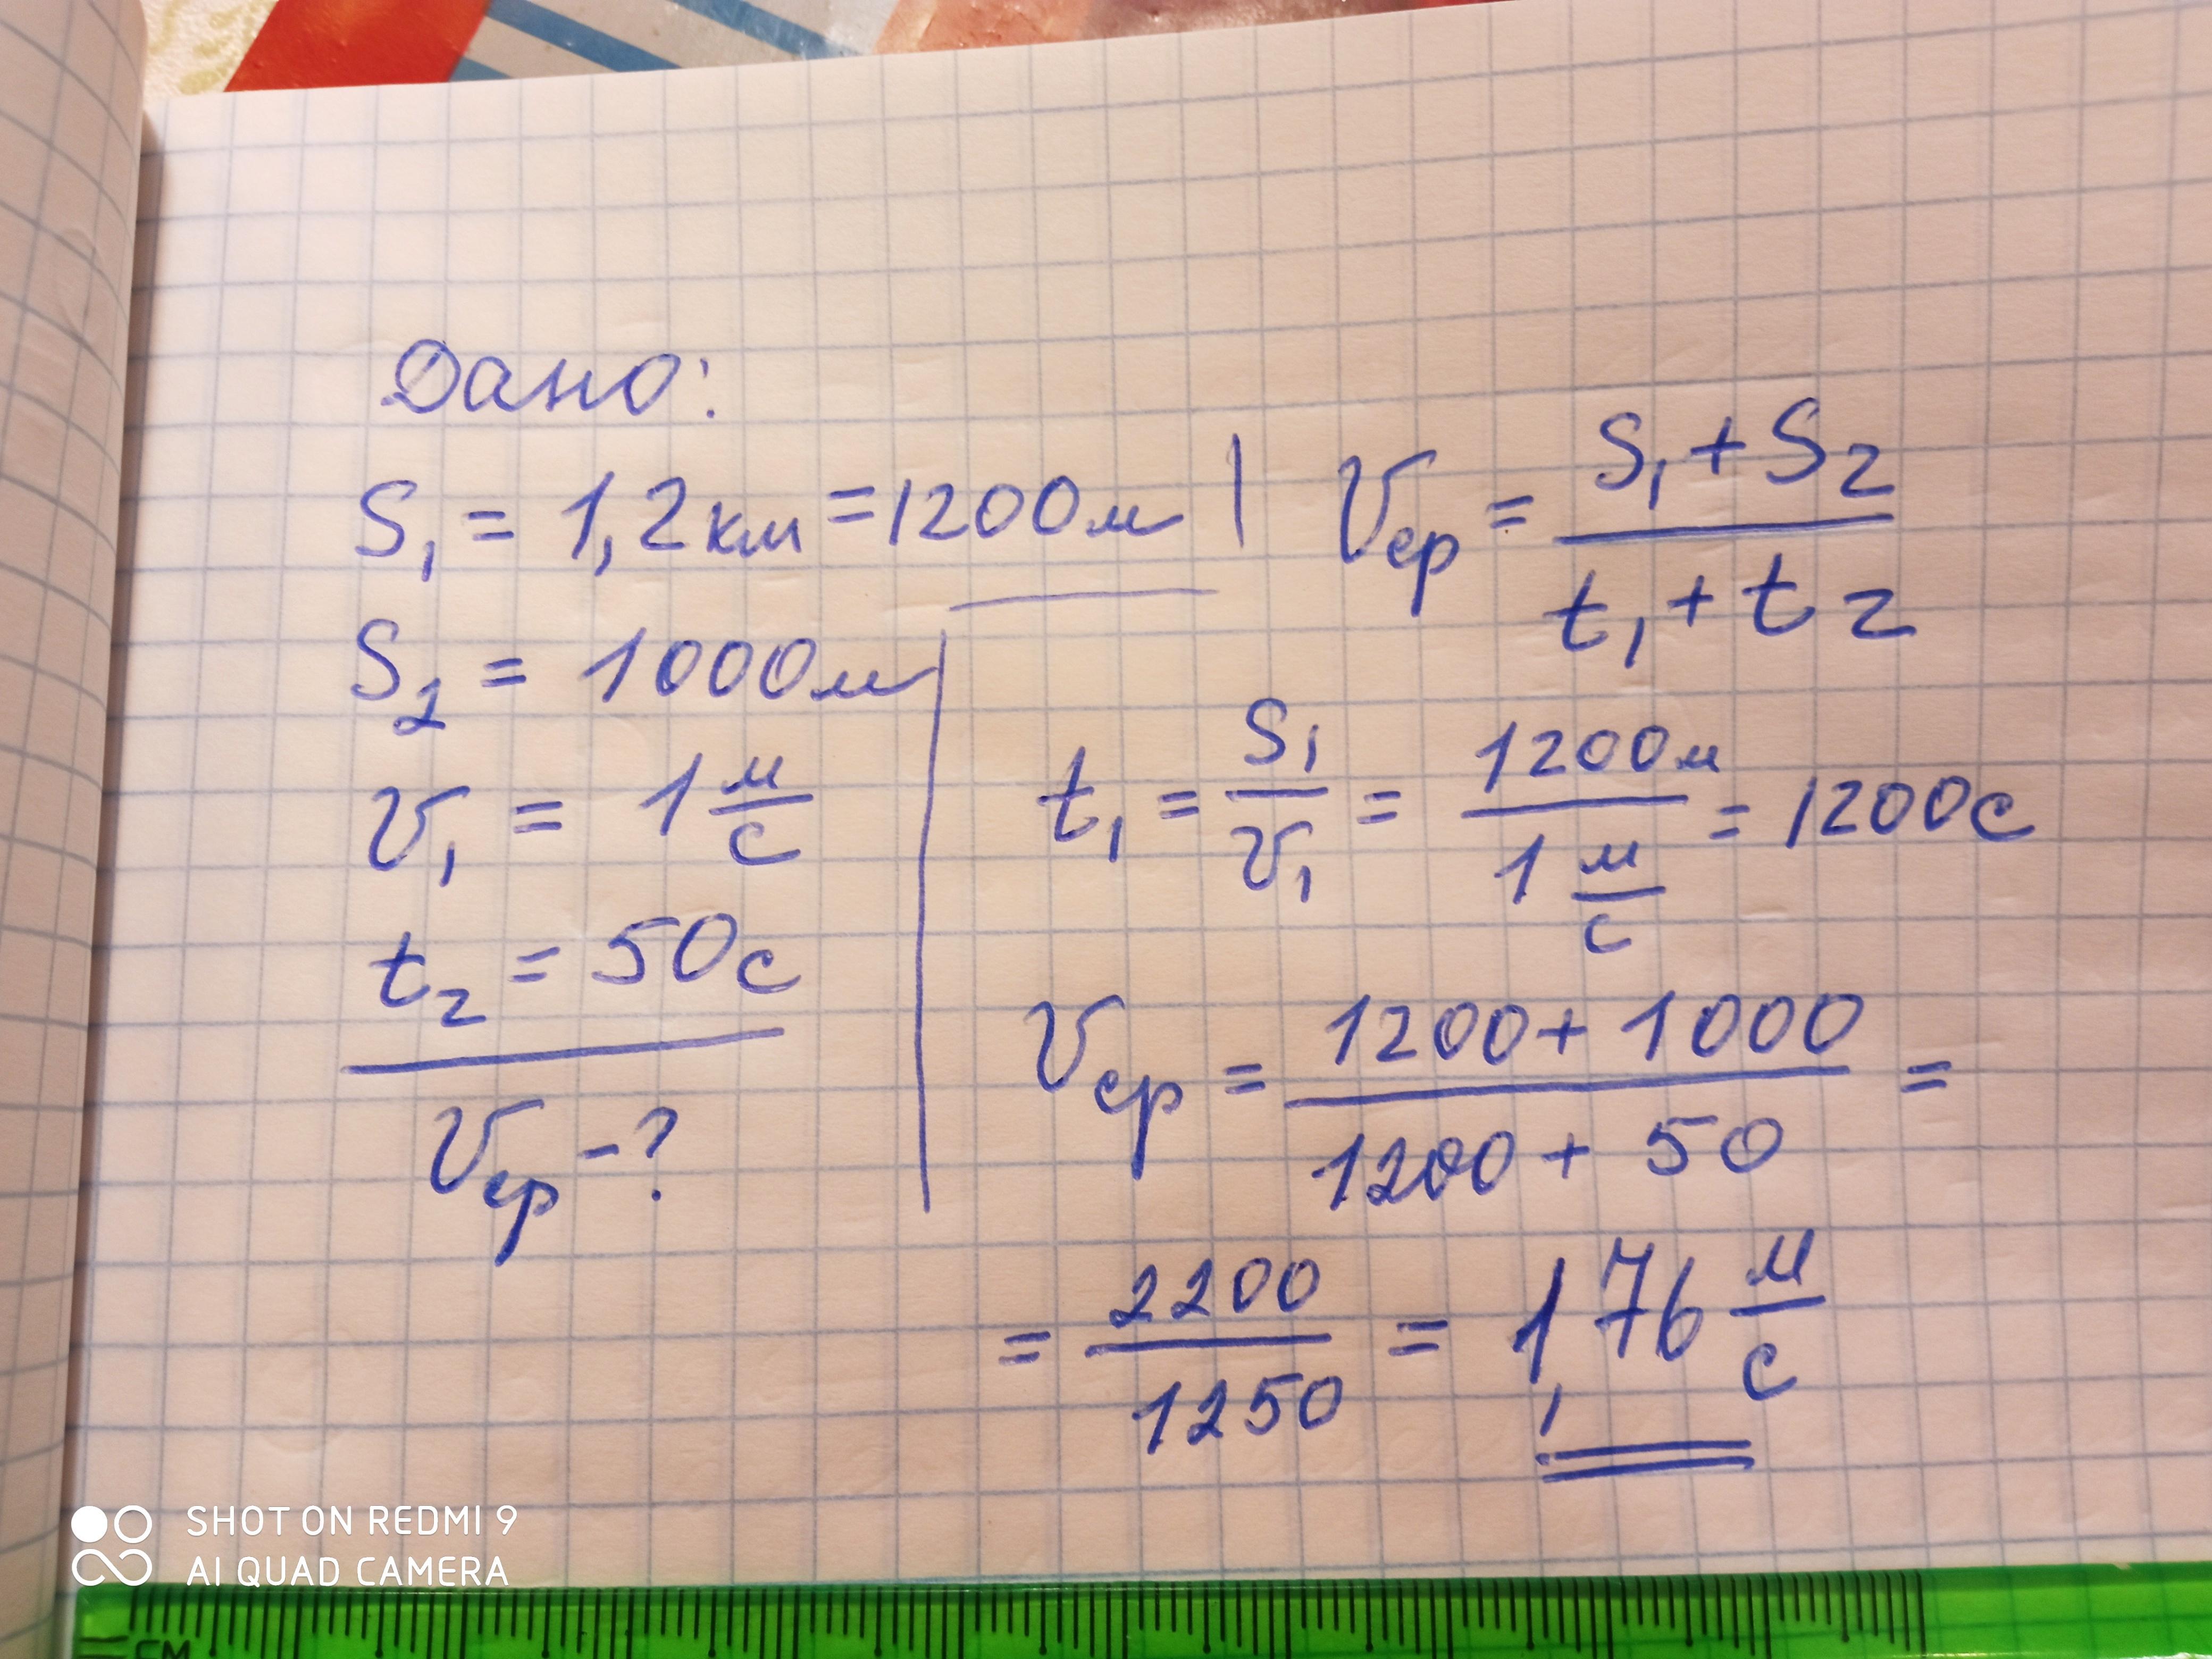 Дано:
S₁ = 1,2 км = 1200 м
S₂ = 1000 м
v₁ = 1 м/с
t₂ = 50 с
vср - ?
vср = (S₁ + S₂)/(t₁ + t₂)
t₁ = S₁/v₁ = 1200 м/(1 м/с) = 1200 с
vср = (1200 + 1000)/(1200 + 50) =
= 2200/1250 = 1,76 м/с
SHOT ON REDMI 9
AI QUAD CAMERA
CM